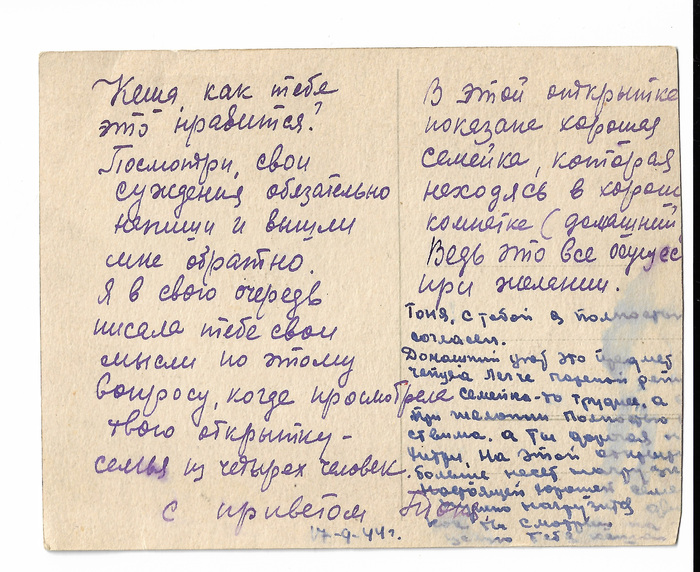 Кеша, как тебе
это нравится?
Посмотри, свои
суждения обязательно
напиши и вышли
мне обратно.
Я в свою очередь
писала тебе свои
мысли по этому
вопросу, когда просмотрела
твою открытку –
семья из четырех человек.
с приветом Тоня
17-9-44 г.
В этой открытке
показана хорошая
семейка, которая
находясь в хорош
комнатке (домашний
Ведь это все осущес
при желании.
Тоня, с тобой я полностью
согласен.
Домашний уют это предмет
легче пареной
семейка-то труднее, а
при желании полностью
ствима. а ты другая
на этой открыт
больше несет нагрузки
настоящей хорошей
нагрузится
смотри
тебя